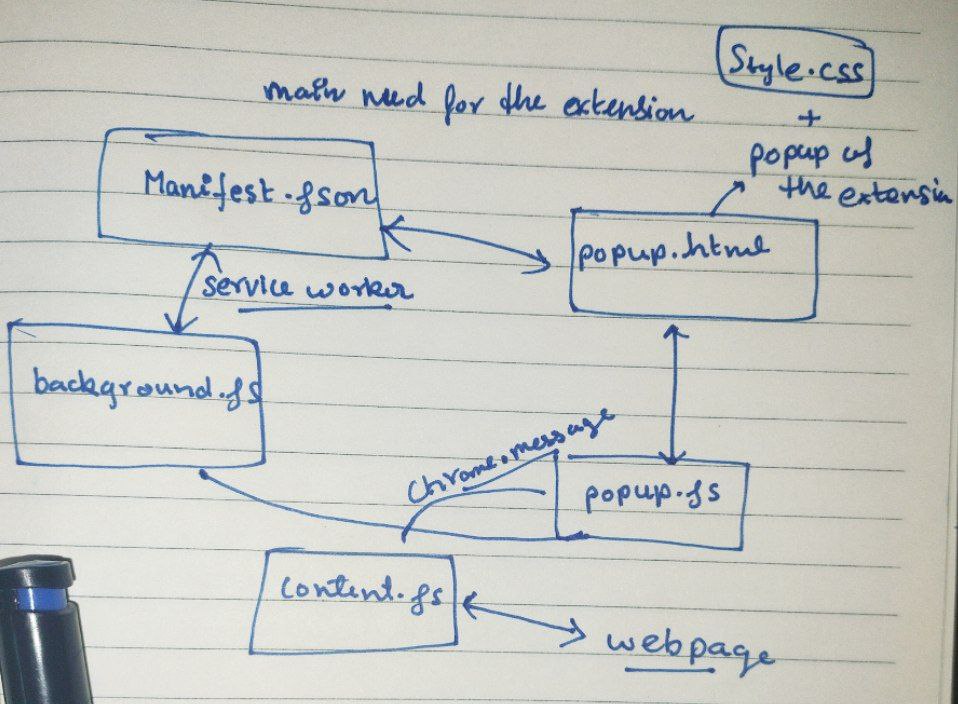 Style.css
main need for the extension
+
popup of
the extensin
Manifest.json
popup.html
service worker
background.js
chrome.message
popup.js
content.js
webpage